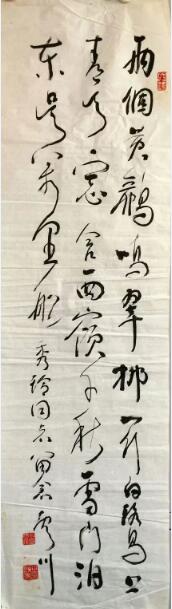 兩個黃鸝鳴翠柳一行白鷺上
青天窓含西嶺千秋雪門泊
東吳万里船
秀同志留念川